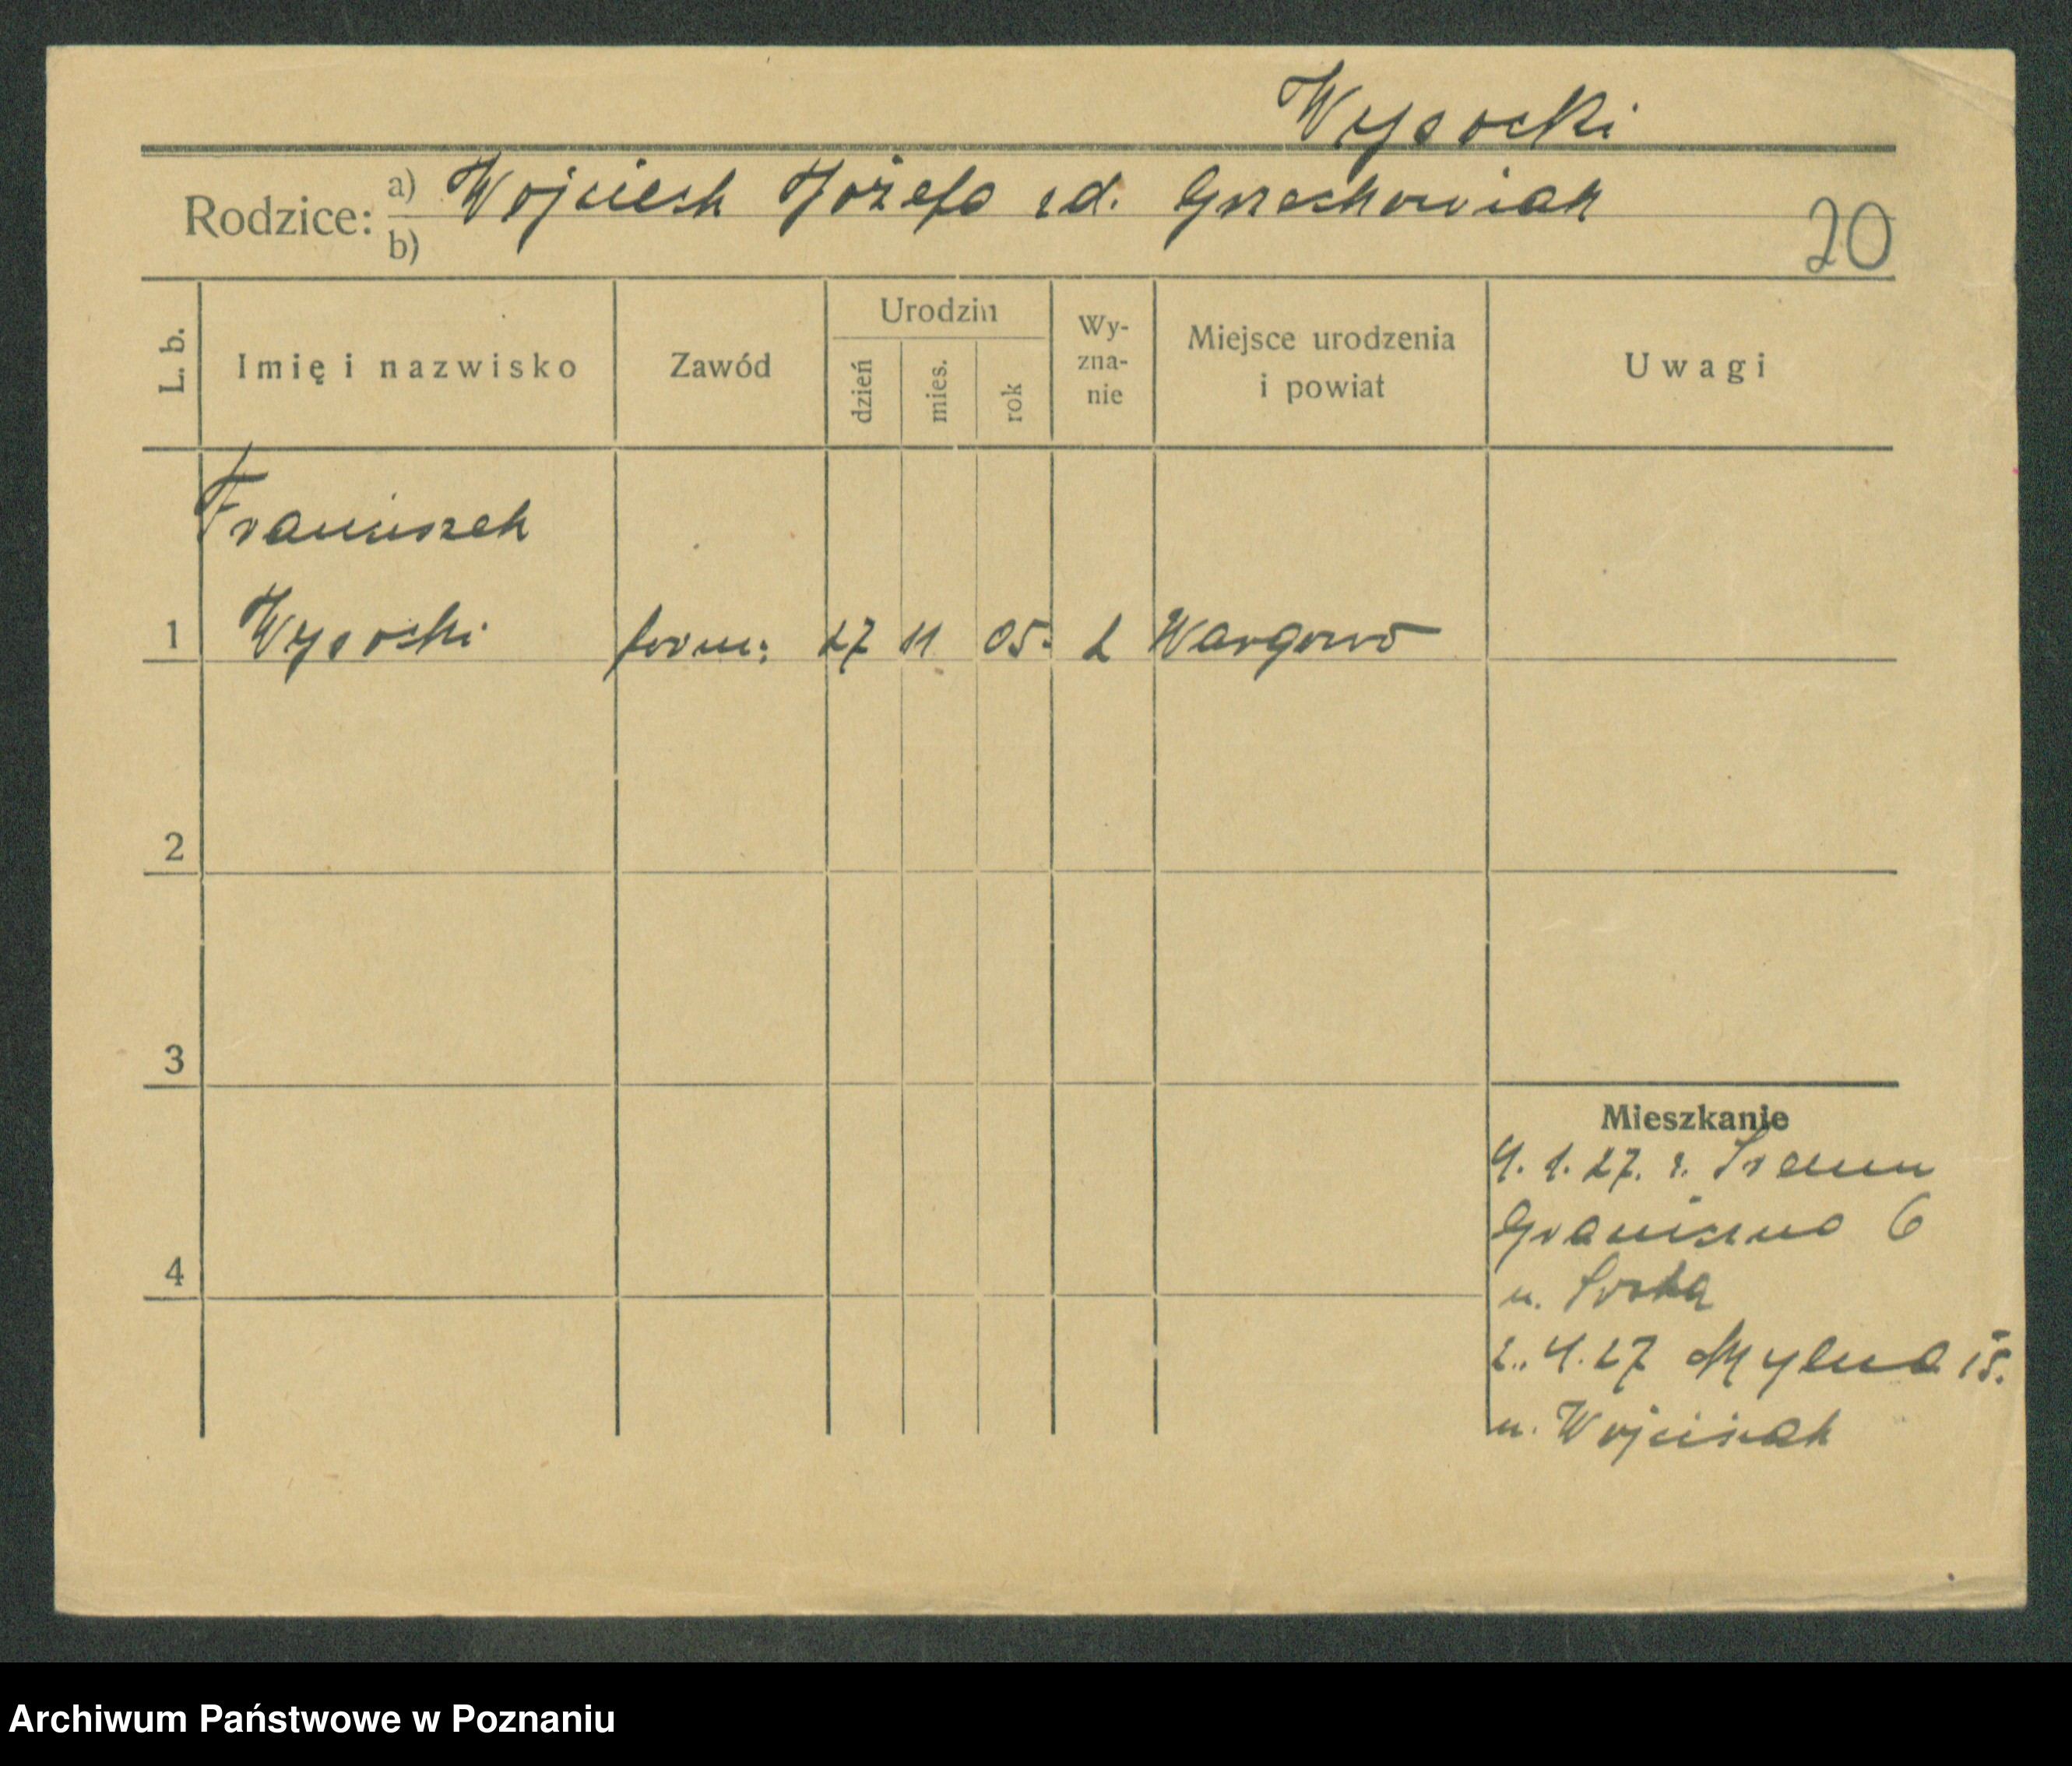 Wysocki
Rodzice: a) Wojciech Józefa zd. Grzechowiak
b)
20
L. b.
Imię i nazwisko
Zawód
Urodzin
dzień
mies.
rok
Wy-
zna-
nie
Miejsce urodzenia
i powiat
Uwagi
Franciszek
1 Wysocki form: 27 11 05. k Wargowo
2
3
4
Mieszkanie
4. 1. 27. z Śremu
Graniczna 6
u. Socha
2. 4. 27 Mylna 15.
u. Wojciszak
Archiwum Państwowe w Poznaniu